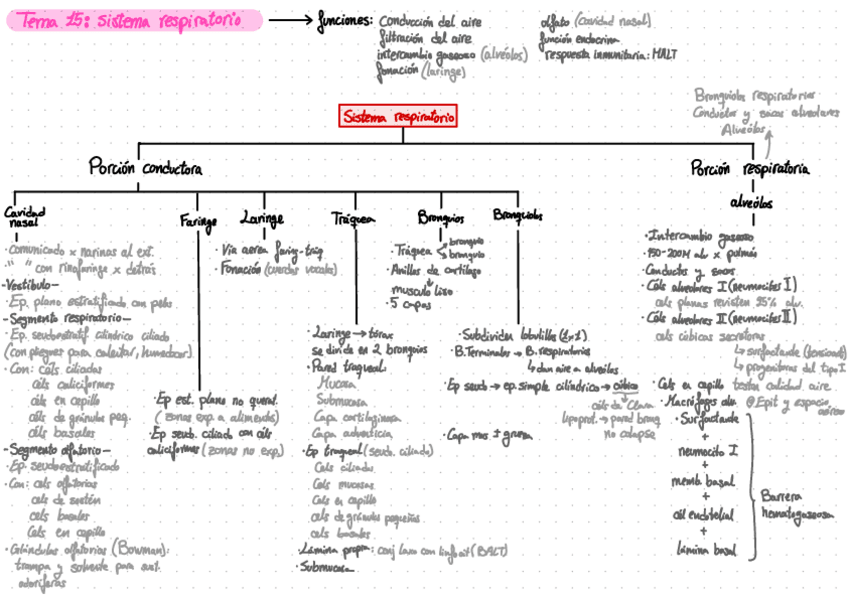 Tema 15: Sistema respiratorio
funciones:
Conducción del aire
filtración del aire
intercambio gaseoso (alvéolos)
fonación (laringe)
olfato (cavidad nasal)
función endocrina
respuesta inmunitaria: MALT
Sistema respiratorio
Bronquiolos respiratorios
Conductos y sacos alveolares
Alveólos
Porción conductora
Porción respiratoria
Cavidad
nasal
·Comunicado x narinas al ext.
" " con rinofaringe x detrás
·Vestíbulo–
·Ep. plano estratificado con pelos
–Segmento respiratorio–
·Ep. seudoestratif cilíndrico ciliado
(con pliegues para calentar, humedecer)
·Con: cels ciliadas
cels caliciformes
cels en cepillo
cels de gránulos peq.
cels basales
–Segmento olfatorio–
·Ep. seudoestratificado
·Con: cels olfatorias
cels de sostén
cels basales
Cels en cepillo
·Glándulas olfatorias (Bowman):
trampa y solvente para sust.
odoríferas
Faringe
·Ep est. plano no querat.
(zonas exp a alimentos)
·Ep seub. ciliado con cels
caliciformes (zonas no exp.)
Laringe
·Vía aerea faring-tráq
·Fonación (cuerdas vocales)
Tráquea
·Laringe → tórax
se divide en 2 bronquios
·Pared traqueal:
Mucosa
Submucosa
Capa cartilaginosa
Capa adventicia
·Ep traqueal (seudo. ciliado)
Cels ciliadas
Cels mucosas
Cels en cepillo
cels de gránulos pequeños
cels basales
·Lámina propia: conj laxo con linfocit (BALT)
·Submucosa
Bronquios
·Tráquea
bronquio
bronquio
·Anillos de cartílago
musculo liso
·5 capas
Bronquiolos
·Subdividen lobulillos (1x1)
·B. Terminales → B. respiratorios
↳ dan aire a alveólos
·Ep seudo → ep. simple cilíndrico → cúbico
cels de Clara
lipoprot. → pared bronq
no colapse
·Capa mus ± gruesa
alveólos
·Intercambio gaseoso
·150-200M alv x pulmón
·Conductos y sacos
·Céls alveolares I (neumocitos I)
cels planas revisten 95% alv.
·Céls alveolares II (neumocitos II)
cels cúbicas secretoras
↳ surfactante (tensioact)
↳ progenitoras del tipo I
·Cels en cepillo testan calidad aire
·Macrófagos alv @Epit y espacio
aéreo
·Surfactante
+
neumocito I
+
memb basal
+
cél endotelial
+
lámina basal
Barrera
hematogaseosa